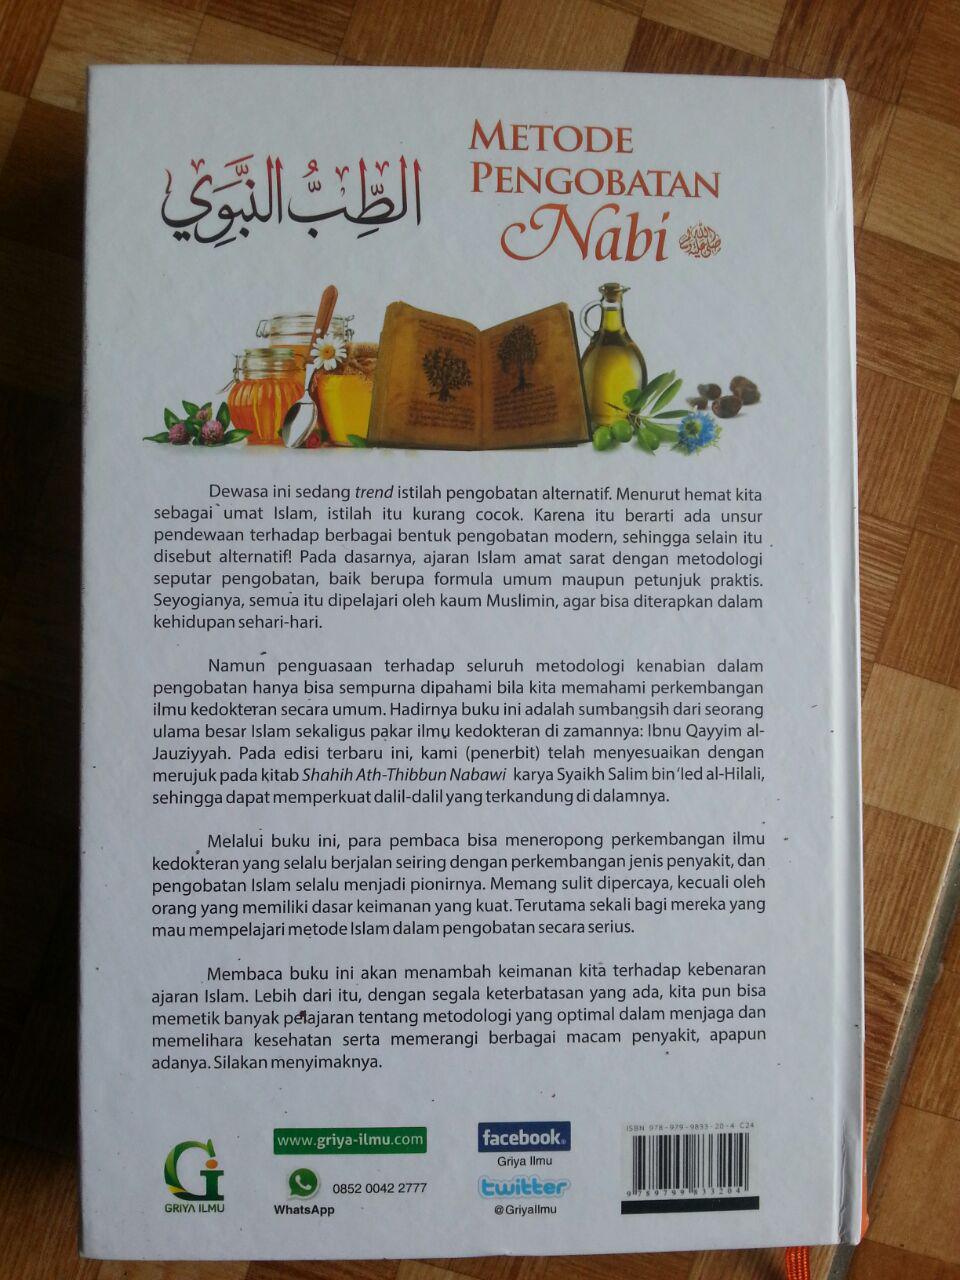 الطِّبُّ النَّبَوِي
METODE
PENGOBATAN
Nabi ﷺ
Dewasa ini sedang trend istilah pengobatan alternatif. Menurut hemat kita
sebagai umat Islam, istilah itu kurang cocok. Karena itu berarti ada unsur
pendewaan terhadap berbagai bentuk pengobatan modern, sehingga selain itu
disebut alternatif! Pada dasarnya, ajaran Islam amat sarat dengan metodologi
seputar pengobatan, baik berupa formula umum maupun petunjuk praktis.
Seyogianya, semua itu dipelajari oleh kaum Muslimin, agar bisa diterapkan dalam
kehidupan sehari-hari.
Namun penguasaan terhadap seluruh metodologi kenabian dalam
pengobatan hanya bisa sempurna dipahami bila kita memahami perkembangan
ilmu kedokteran secara umum. Hadirnya buku ini adalah sumbangsih dari seorang
ulama besar Islam sekaligus pakar ilmu kedokteran di zamannya: Ibnu Qayyim al-
Jauziyyah. Pada edisi terbaru ini, kami (penerbit) telah menyesuaikan dengan
merujuk pada kitab Shahih Ath-Thibbun Nabawi karya Syaikh Salim bin 'Ied al-Hilali,
sehingga dapat memperkuat dalil-dalil yang terkandung di dalamnya.
Melalui buku ini, para pembaca bisa meneropong perkembangan ilmu
kedokteran yang selalu berjalan seiring dengan perkembangan jenis penyakit, dan
pengobatan Islam selalu menjadi pionirnya. Memang sulit dipercaya, kecuali oleh
orang yang memiliki dasar keimanan yang kuat. Terutama sekali bagi mereka yang
mau mempelajari metode Islam dalam pengobatan secara serius.
Membaca buku ini akan menambah keimanan kita terhadap kebenaran
ajaran Islam. Lebih dari itu, dengan segala keterbatasan yang ada, kita pun bisa
memetik banyak pelajaran tentang metodologi yang optimal dalam menjaga dan
memelihara kesehatan serta memerangi berbagai macam penyakit, apapun
adanya. Silakan menyimaknya.
Gi
GRIYA ILMU
www.griya-ilmu.com
0852 0042 2777
WhatsApp
facebook.
Griya Ilmu
twitter
@GriyaIlmu
ISBN 978-979-9833-20-4 C24
9 789799 833204